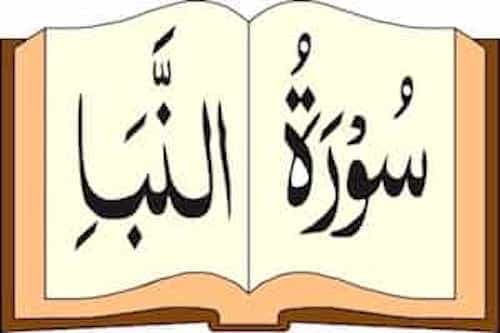 سُوْرَةُ النَّبَاِ